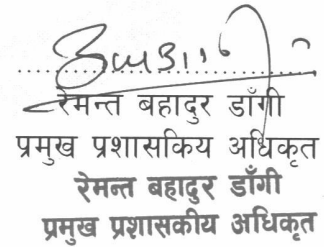 रेमन्त बहादुर डाँगी
प्रमुख प्रशासकिय अधिकृत
रेमन्त बहादुर डाँगी
प्रमुख प्रशासकीय अधिकृत